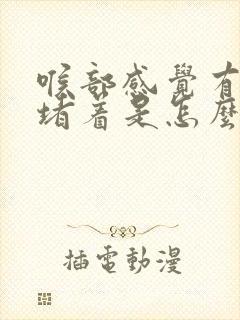 喉部感覺有
堵着是怎麼
插電動漫